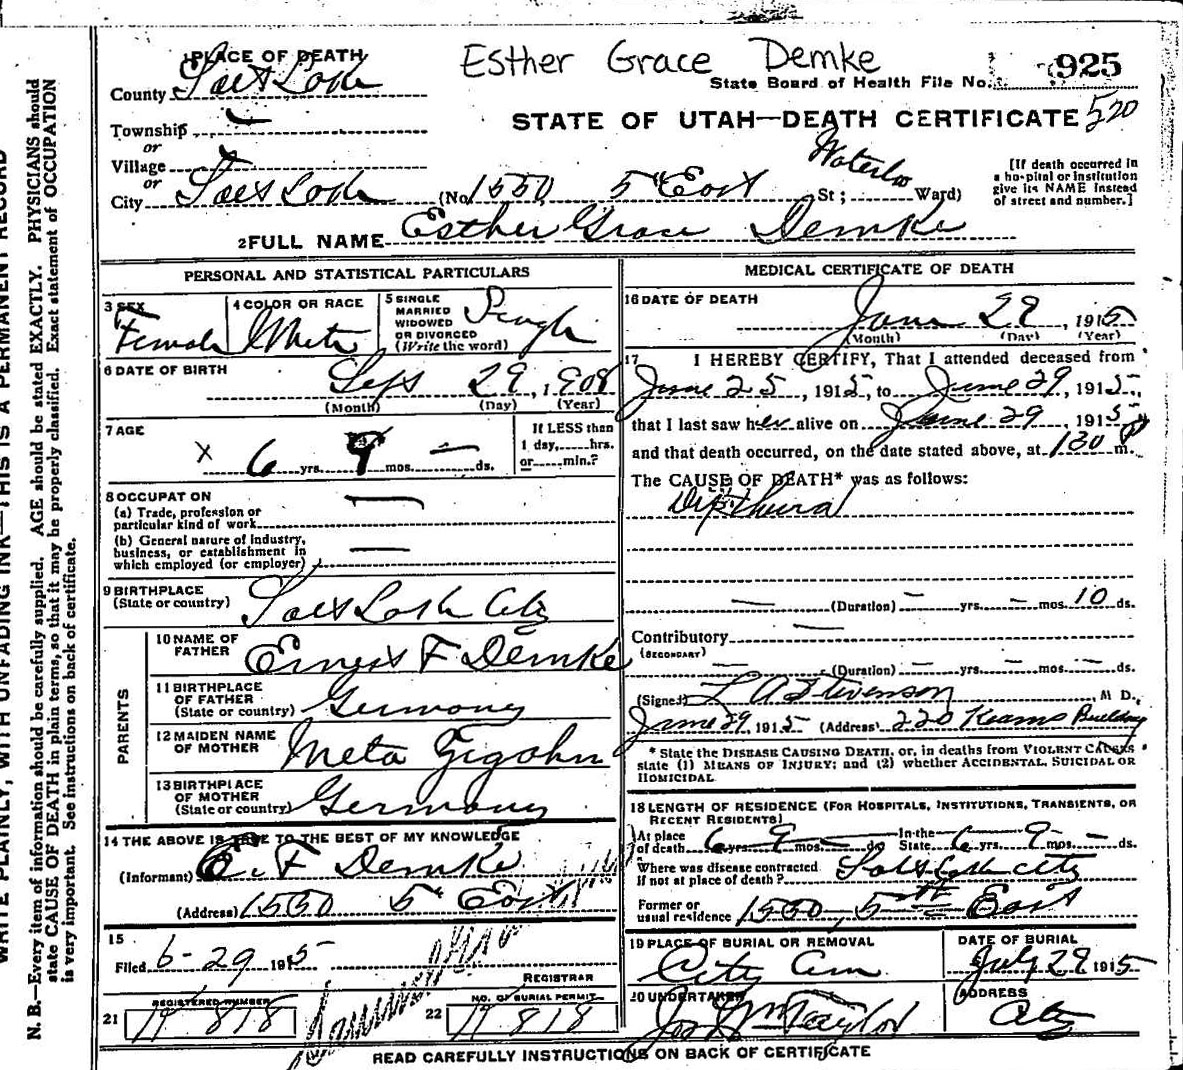 Esther Grace Demke
925
State Board of Health File No.
520
STATE OF UTAH—DEATH CERTIFICATE
1 PLACE OF DEATH
County Salt Lake
Township
or
Village
or
City Salt Lake (No. 1550 5th East St; Waterloo Ward)
[If death occurred in
a hospital or institution
give its NAME instead
of street and number.]
2 FULL NAME Esther Grace Demke
PERSONAL AND STATISTICAL PARTICULARS
3 SEX
Female
4 COLOR OR RACE
White
5 SINGLE
MARRIED
WIDOWED
OR DIVORCED
(Write the word)
Single
6 DATE OF BIRTH
Sept 29, 1908
(Month) (Day) (Year)
7 AGE
6 yrs. 9 mos. — ds.
If LESS than
1 day, hrs.
or min.?
8 OCCUPATION
(a) Trade, profession or
particular kind of work —
(b) General nature of industry,
business, or establishment in
which employed (or employer) —
9 BIRTHPLACE
(State or country) Salt Lake City
PARENTS
10 NAME OF
FATHER Ernest F Demke
11 BIRTHPLACE
OF FATHER
(State or country) Germany
12 MAIDEN NAME
OF MOTHER Meta Gigohn
13 BIRTHPLACE
OF MOTHER
(State or country) Germany
14 THE ABOVE IS TRUE TO THE BEST OF MY KNOWLEDGE
(Informant) E. F Demke
(Address) 1550 5th East
15
Filed 6-29 1915
REGISTRAR
21 REGISTERED NUMBER
22 NO. OF BURIAL PERMIT
MEDICAL CERTIFICATE OF DEATH
16 DATE OF DEATH
June 29, 1915
(Month) (Day) (Year)
17 I HEREBY CERTIFY, That I attended deceased from
June 25, 1915, to June 29, 1915,
that I last saw her alive on June 29 1915
and that death occurred, on the date stated above, at 130 P m.
The CAUSE OF DEATH* was as follows:
Diptheria
— (Duration) — yrs. — mos. 10 ds.
Contributory —
(SECONDARY)
— (Duration) — yrs. — mos. — ds.
(Signed) L A Stevenson, M D.
June 29 1915 (Address) 220 Kearns Building
* State the DISEASE CAUSING DEATH, or, in deaths from VIOLENT CAUSES
state (1) MEANS OF INJURY; and (2) whether ACCIDENTAL, SUICIDAL OR
HOMICIDAL
18 LENGTH OF RESIDENCE (FOR HOSPITALS, INSTITUTIONS, TRANSIENTS, OR
RECENT RESIDENTS)
At place
of death 6 yrs. 9 mos. — ds. In the State 6 yrs. 9 mos. — ds.
Where was disease contracted
if not at place of death? Salt Lake City
Former or
usual residence 1550, 5th East
19 PLACE OF BURIAL OR REMOVAL
City Cem
DATE OF BURIAL
July 29 1915
20 UNDERTAKER
Jos Wm Taylor
ADDRESS
City
READ CAREFULLY INSTRUCTIONS ON BACK OF CERTIFICATE
WRITE PLAINLY, WITH UNFADING INK—THIS IS A PERMANENT RECORD
N. B.—Every item of information should be carefully supplied. AGE should be stated EXACTLY. PHYSICIANS should
state CAUSE OF DEATH in plain terms, so that it may be properly classified. Exact statement of OCCUPATION
is very important. See instructions on back of certificate.